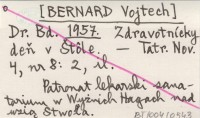 [BERNARD Vojtech]
Dr. Bd., 1957. Zdravotnícky
deň v Štôle. — Tatr. Nov.
4, nr 8: 2, il.
Patronat lekarski sana-
torium w Wyżnich Hagach nad
wsią Stwoła.
BT1004/0543